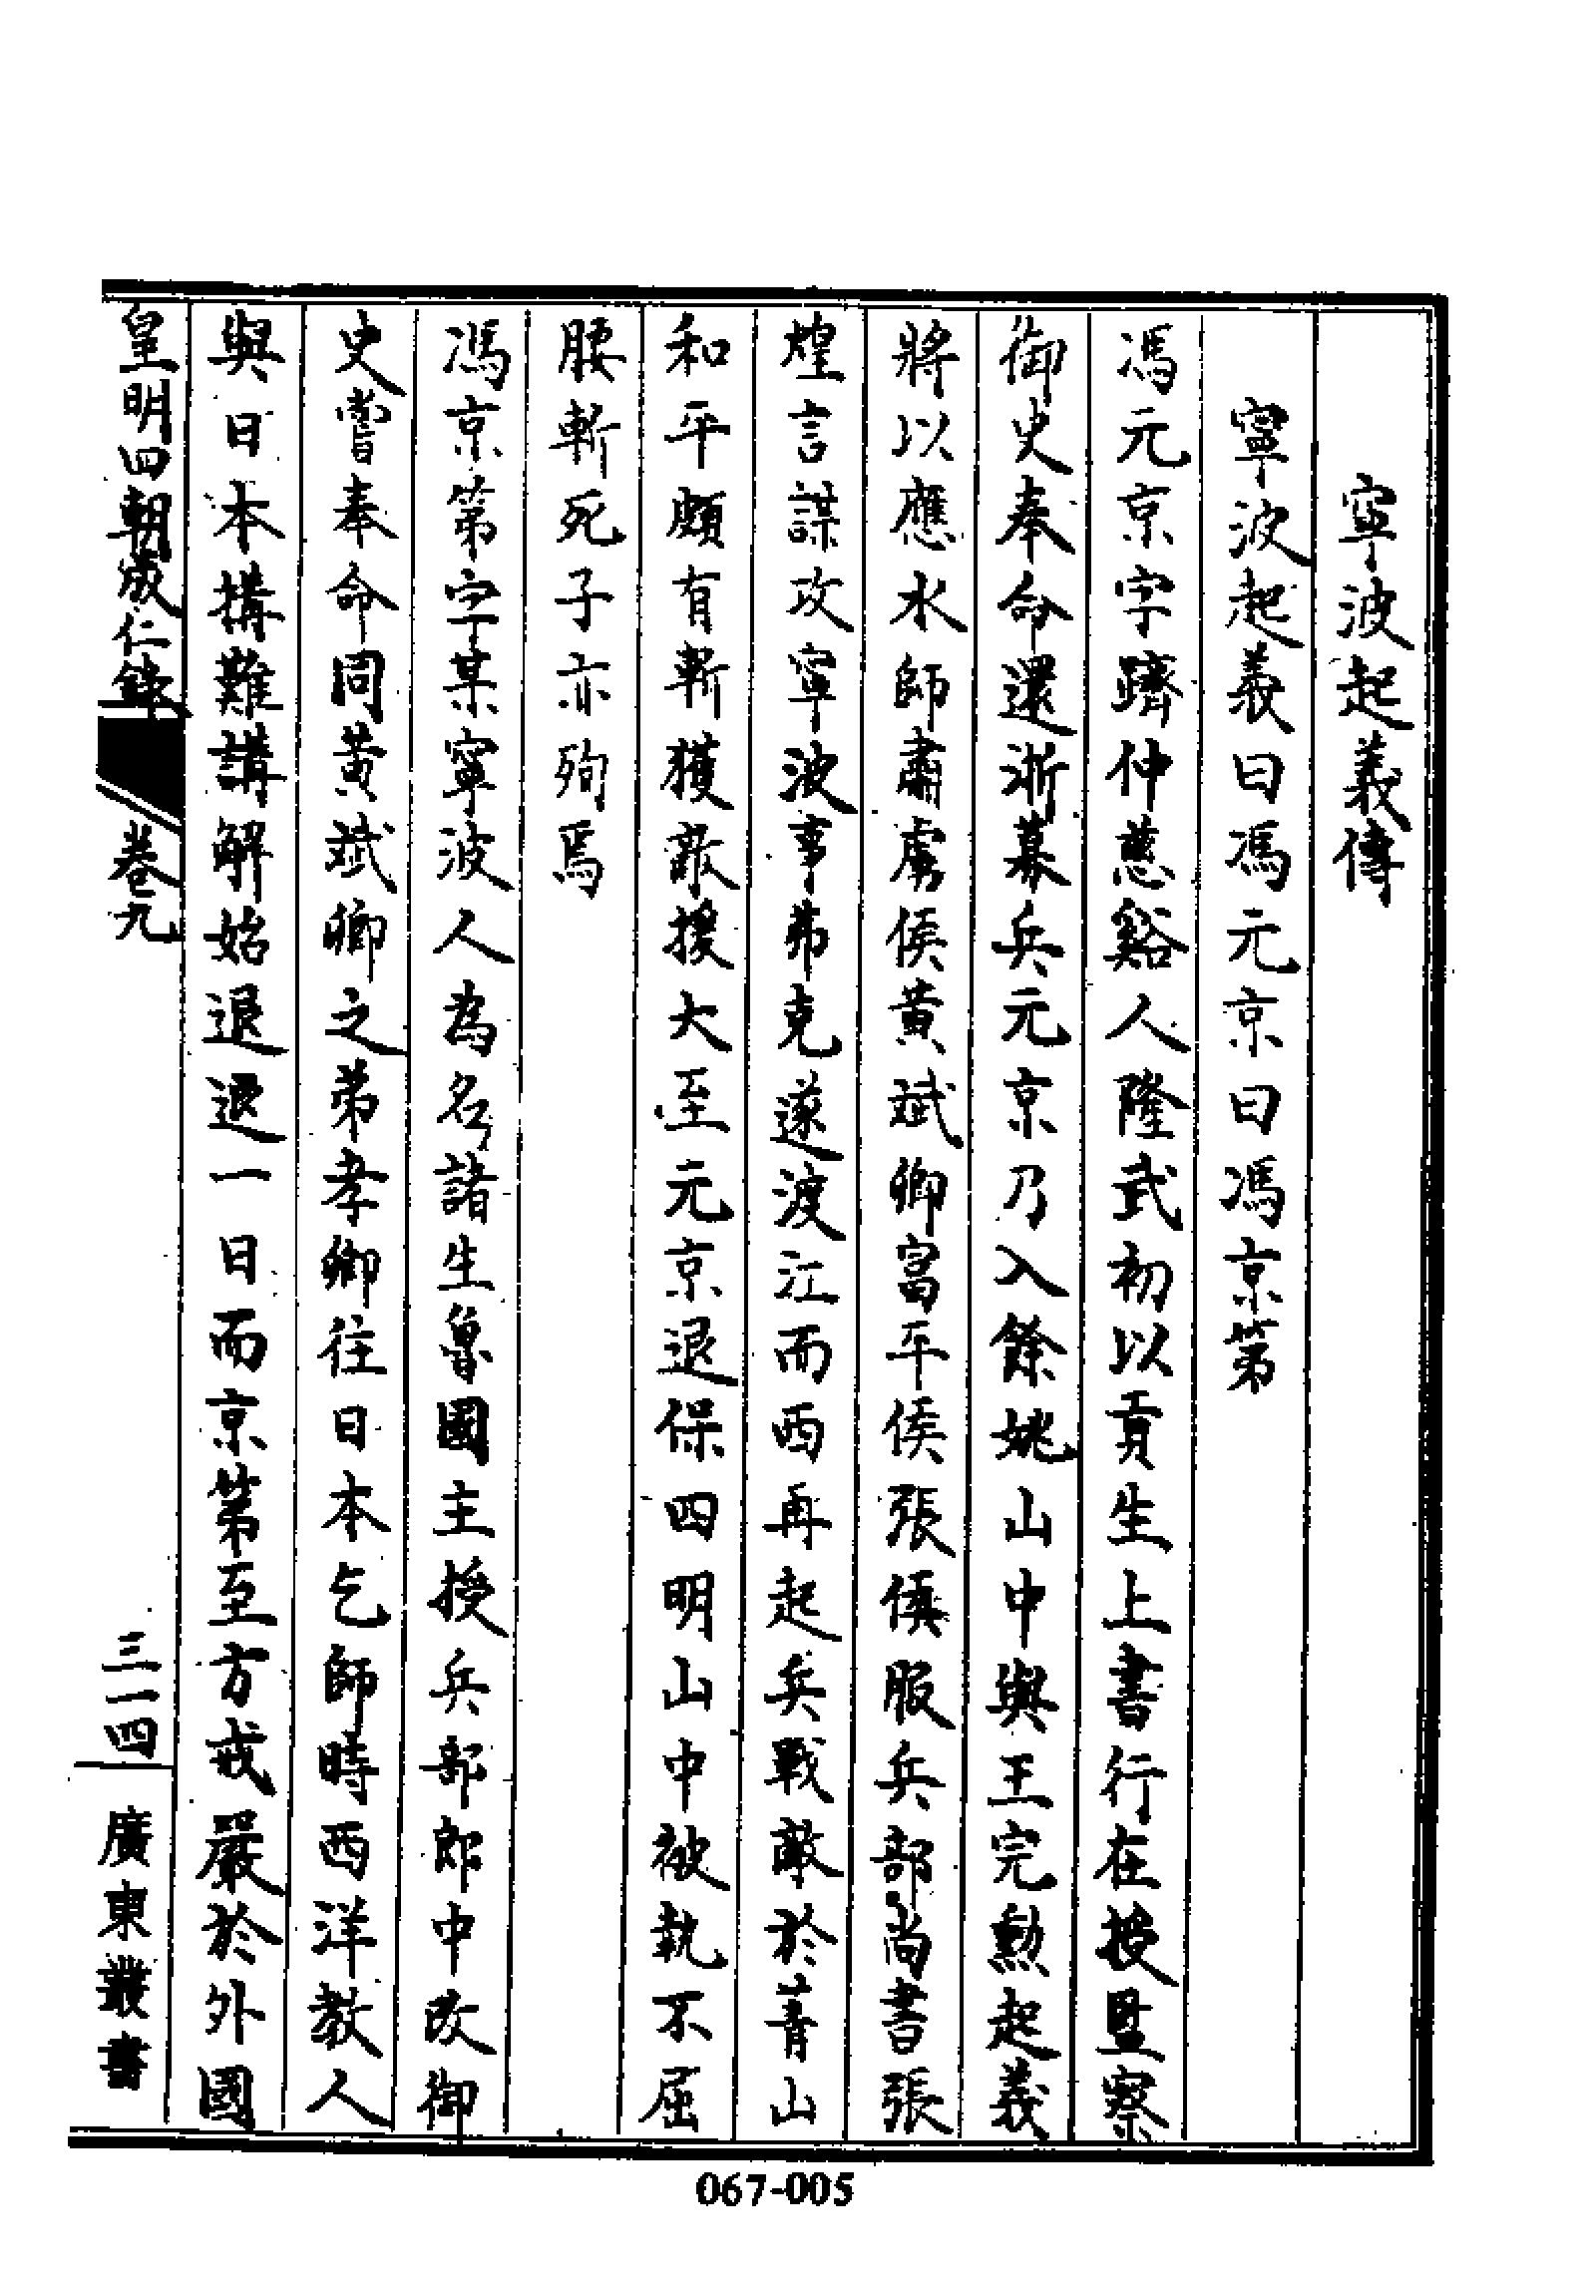 寧波起義傳
寧波起義曰馮元京曰馮京第
馮元京字躋仲慈谿人隆武初以貢生上書行在授監察
御史奉命還浙募兵元京乃入餘姚山中與王完勲起義
將以應水師肅虜侯黃斌卿富平侯張侯服兵部尚書張
煌言謀攻寧波事弗克遂渡江而西再起兵戰敵於菁山
和平頗有斬獲敵援大至元京退保四明山中被執不屈
腰斬死子亦殉焉
馮京第字某寧波人為名諸生魯國主授兵部郎中改御
史嘗奉命同黃斌卿之弟孝卿往日本乞師時西洋教人
與日本搆難講解始退退一日而京第至方戒嚴於外國
皇明四朝成仁錄
卷九
三一四
廣東叢書
067-005